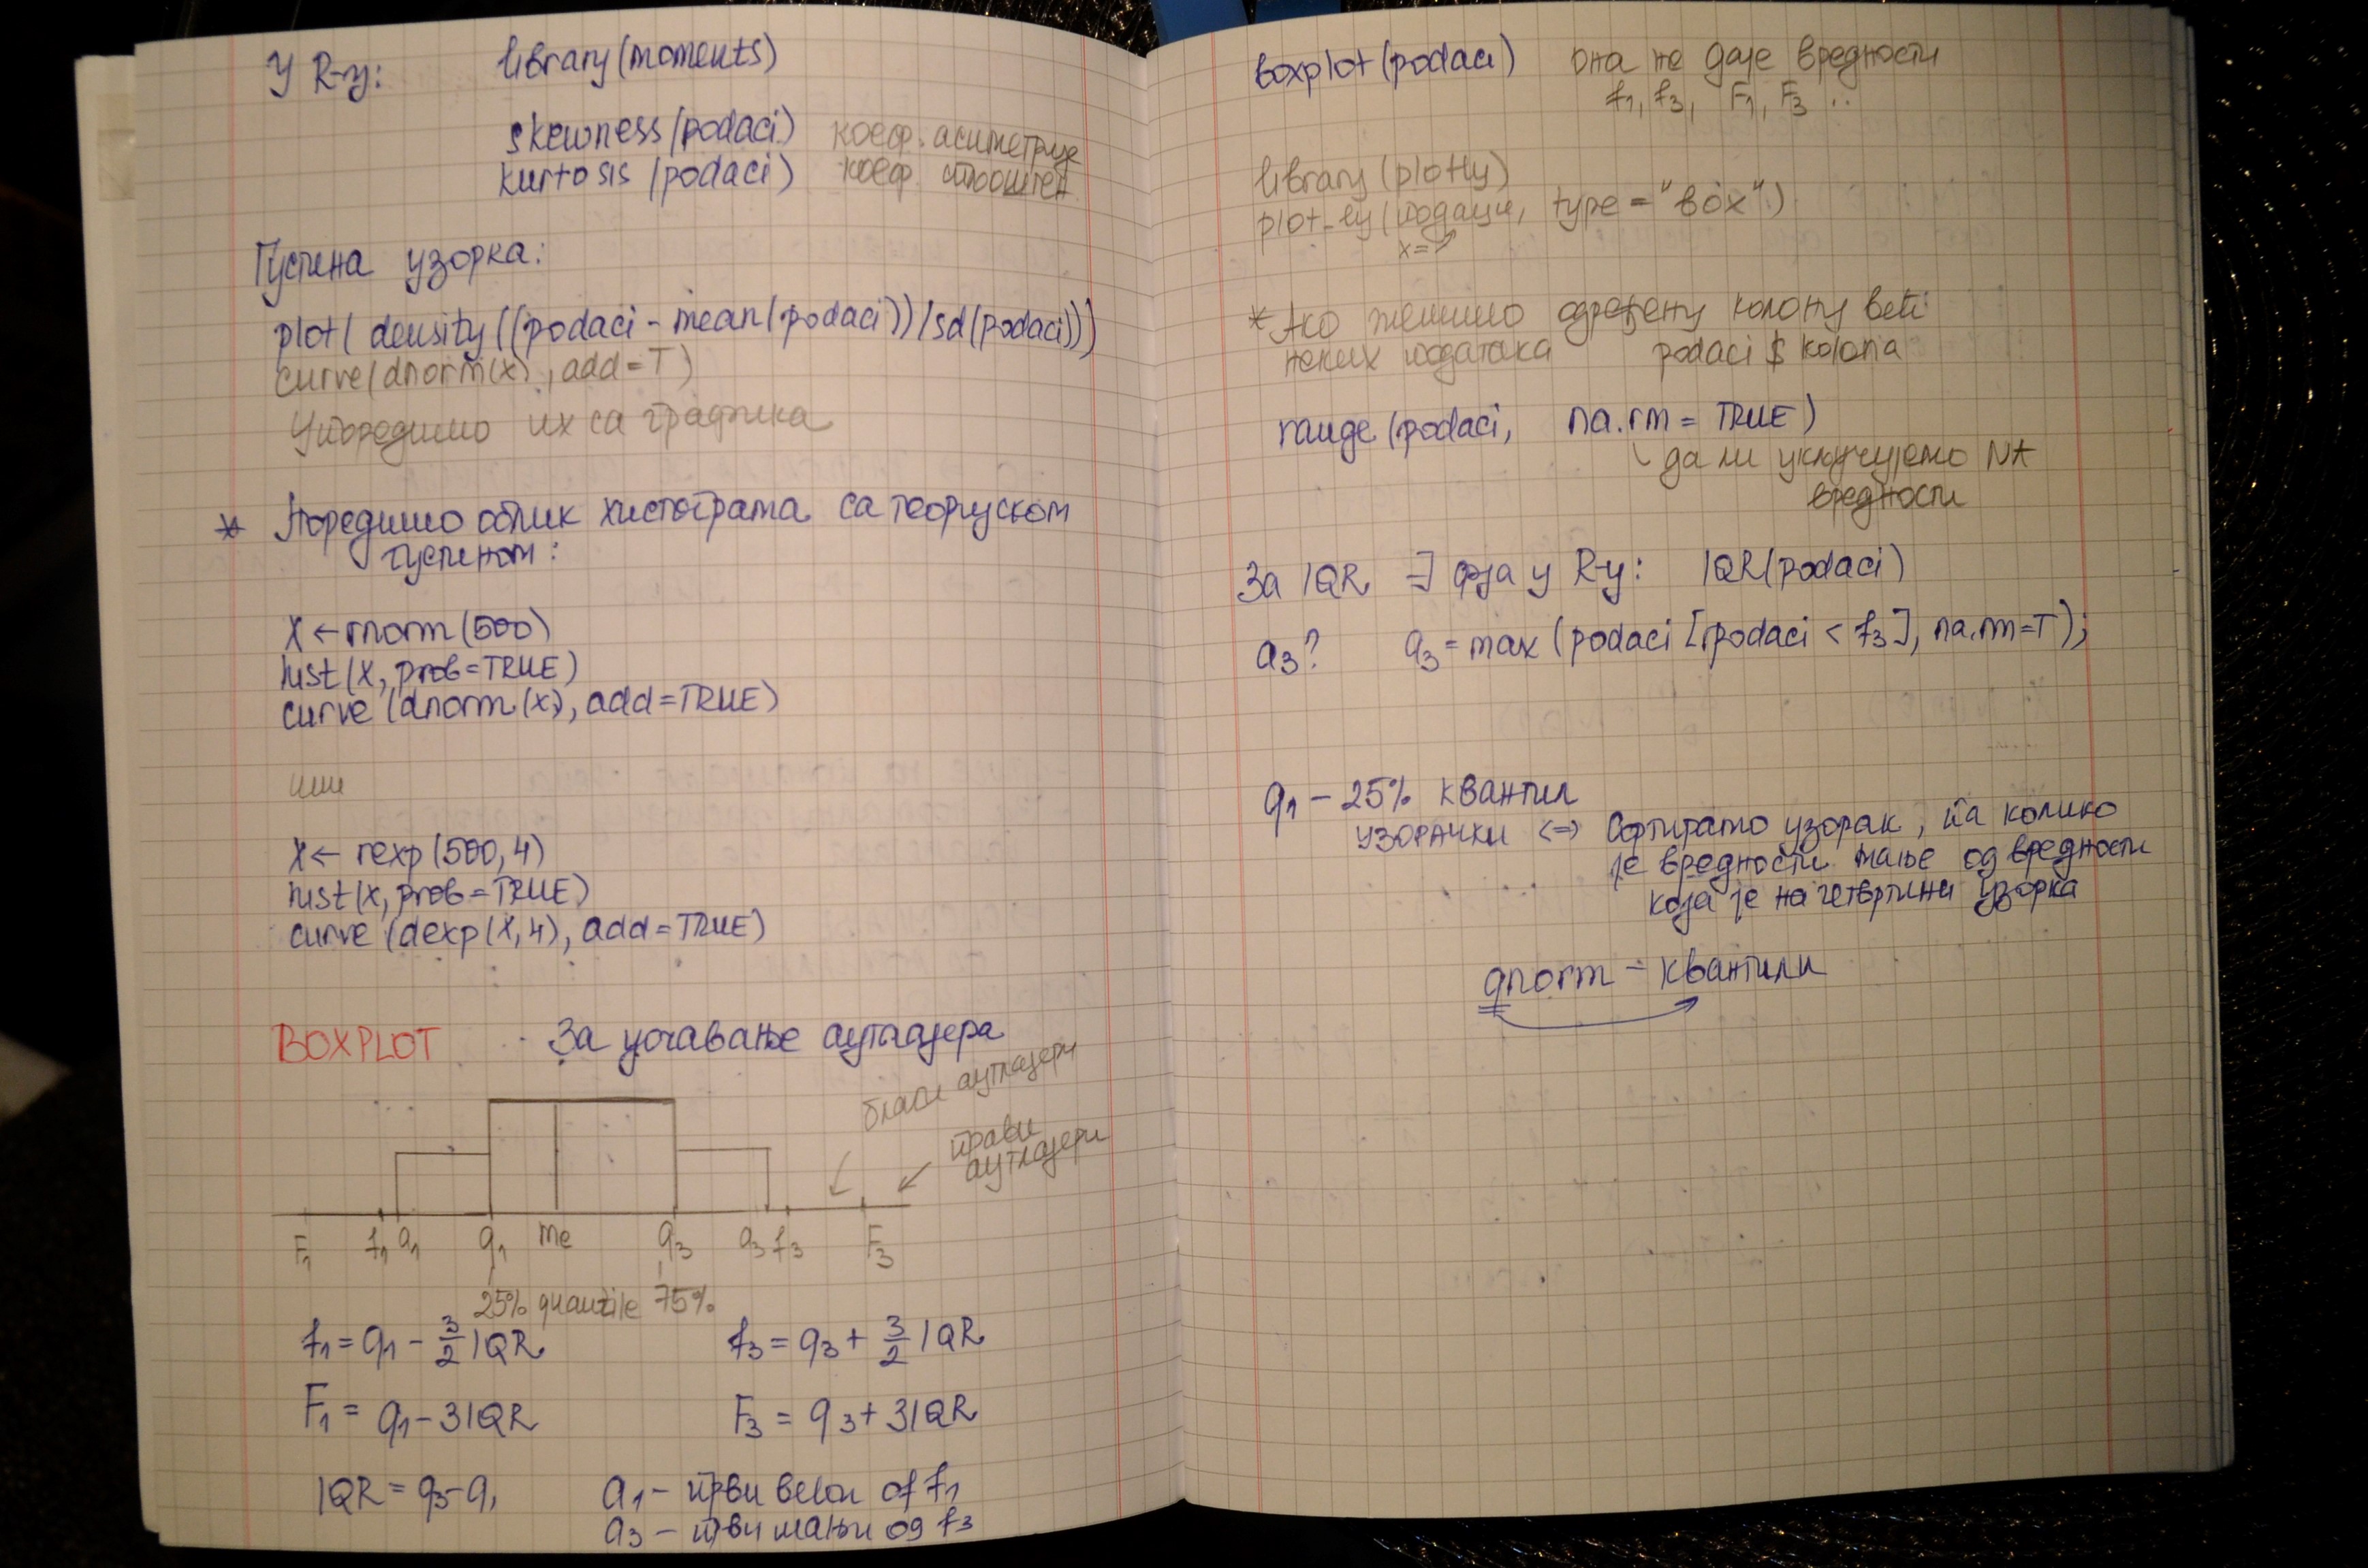 У R-у: library(moments)
skewness(podaci) коеф. асиметрије
kurtosis(podaci) коеф. спљоштен
Густина узорка:
plot(density((podaci-mean(podaci))/sd(podaci)))
curve(dnorm(x), add=T)
Упоредимо их са графика
* Поредимо облик хистограма са теоријском
густином:
X ← rnorm(500)
hist(X, prob=TRUE)
curve(dnorm(x), add=TRUE)
или
X ← rexp(500,4)
hist(x, prob=TRUE)
curve(dexp(X,4), add=TRUE)
BOXPLOT За уочавање аутлајера
благи аутлајери
прави
аутлајери
F₁ f₁ a₁ q₁ me q₃ a₃ f₃ F₃
25% quantile 75%
f₁ = q₁ - 3/2 IQR f₃ = q₃ + 3/2 IQR
F₁ = q₁ - 3IQR F₃ = q₃ + 3IQR
IQR = q₃-q₁ a₁ - први већи of f₁
a₃ - први мањи од f₃
boxplot(podaci) она не даје вредности
f₁, f₃, F₁, F₃ ..
library(plotly)
plot_ly(подаци, type="box")
x=
* Ако желимо одређену колону већ
неких података podaci $ kolona
range(podaci, na.rm = TRUE)
да ли укључујемо NA
вредности
За IQR ∃ фја у R-у: IQR(podaci)
a₃? a₃ = max(podaci[podaci < f₃], na.rm=T);
q₁ - 25% квантил
узорачки ⇔ Сортирамо узорак, па колико
је вредности мање од вредности
која је на четвртини узорка
qnorm - квантили